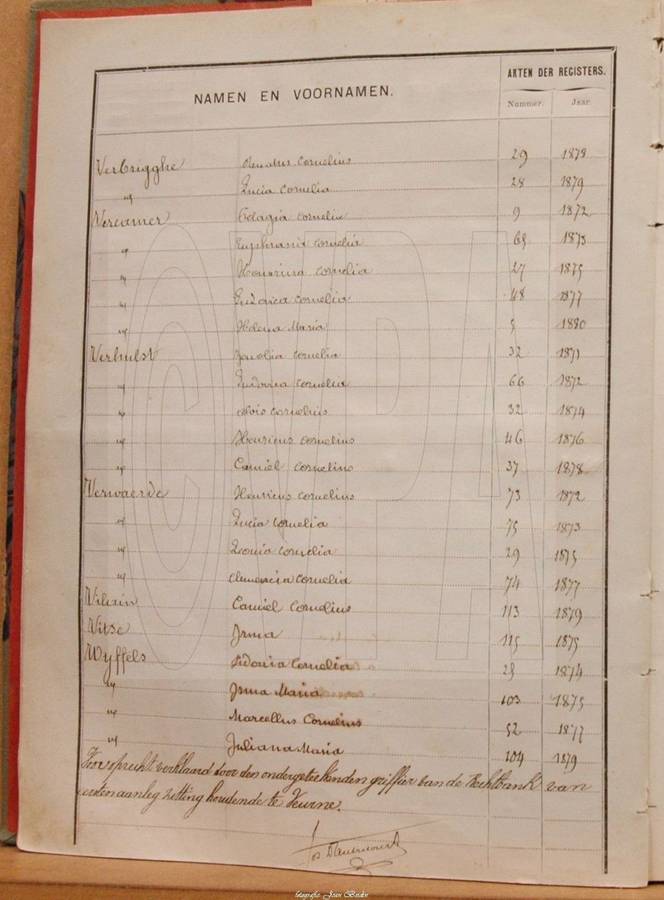 NAMEN EN VOORNAMEN.
AKTEN DER REGISTERS.
Nummer. Jaar.
Verbrigghe Cornelius 29 1878
" Lucia Cornelia 28 1879
Vercamer Pelagia Cornelia 9 1872
" Euphrasie Cornelia 69 1873
" Honorina Cornelia 27 1875
" Ludovica Cornelia 48 1877
" Helena Maria 5 1880
Verhulst Cornelia 32 1871
" Ludovica Cornelia 66 1872
" Aloïs Cornelius 32 1874
" Henricus Cornelius 46 1876
" Camiel Cornelius 37 1878
Verwaerde Henricus Cornelius 73 1872
" Lucia Cornelia 75 1873
" Leonia Cornelia 29 1875
" Clemencia Cornelia 74 1877
Vilain Camiel Cornelius 113 1879
Vitse Irma 115 1875
Wyffels Sidonia Cornelia 25 1874
" Irma Maria 103 1875
" Marcellus Cornelius 52 1877
" Juliana Maria 104 1879
Voor oprecht verklaard door den ondergeteekenden griffier van de Rechtbank van
eersten aanleg zitting houdende te Veurne.
CVPA
fotografie Johan Breden